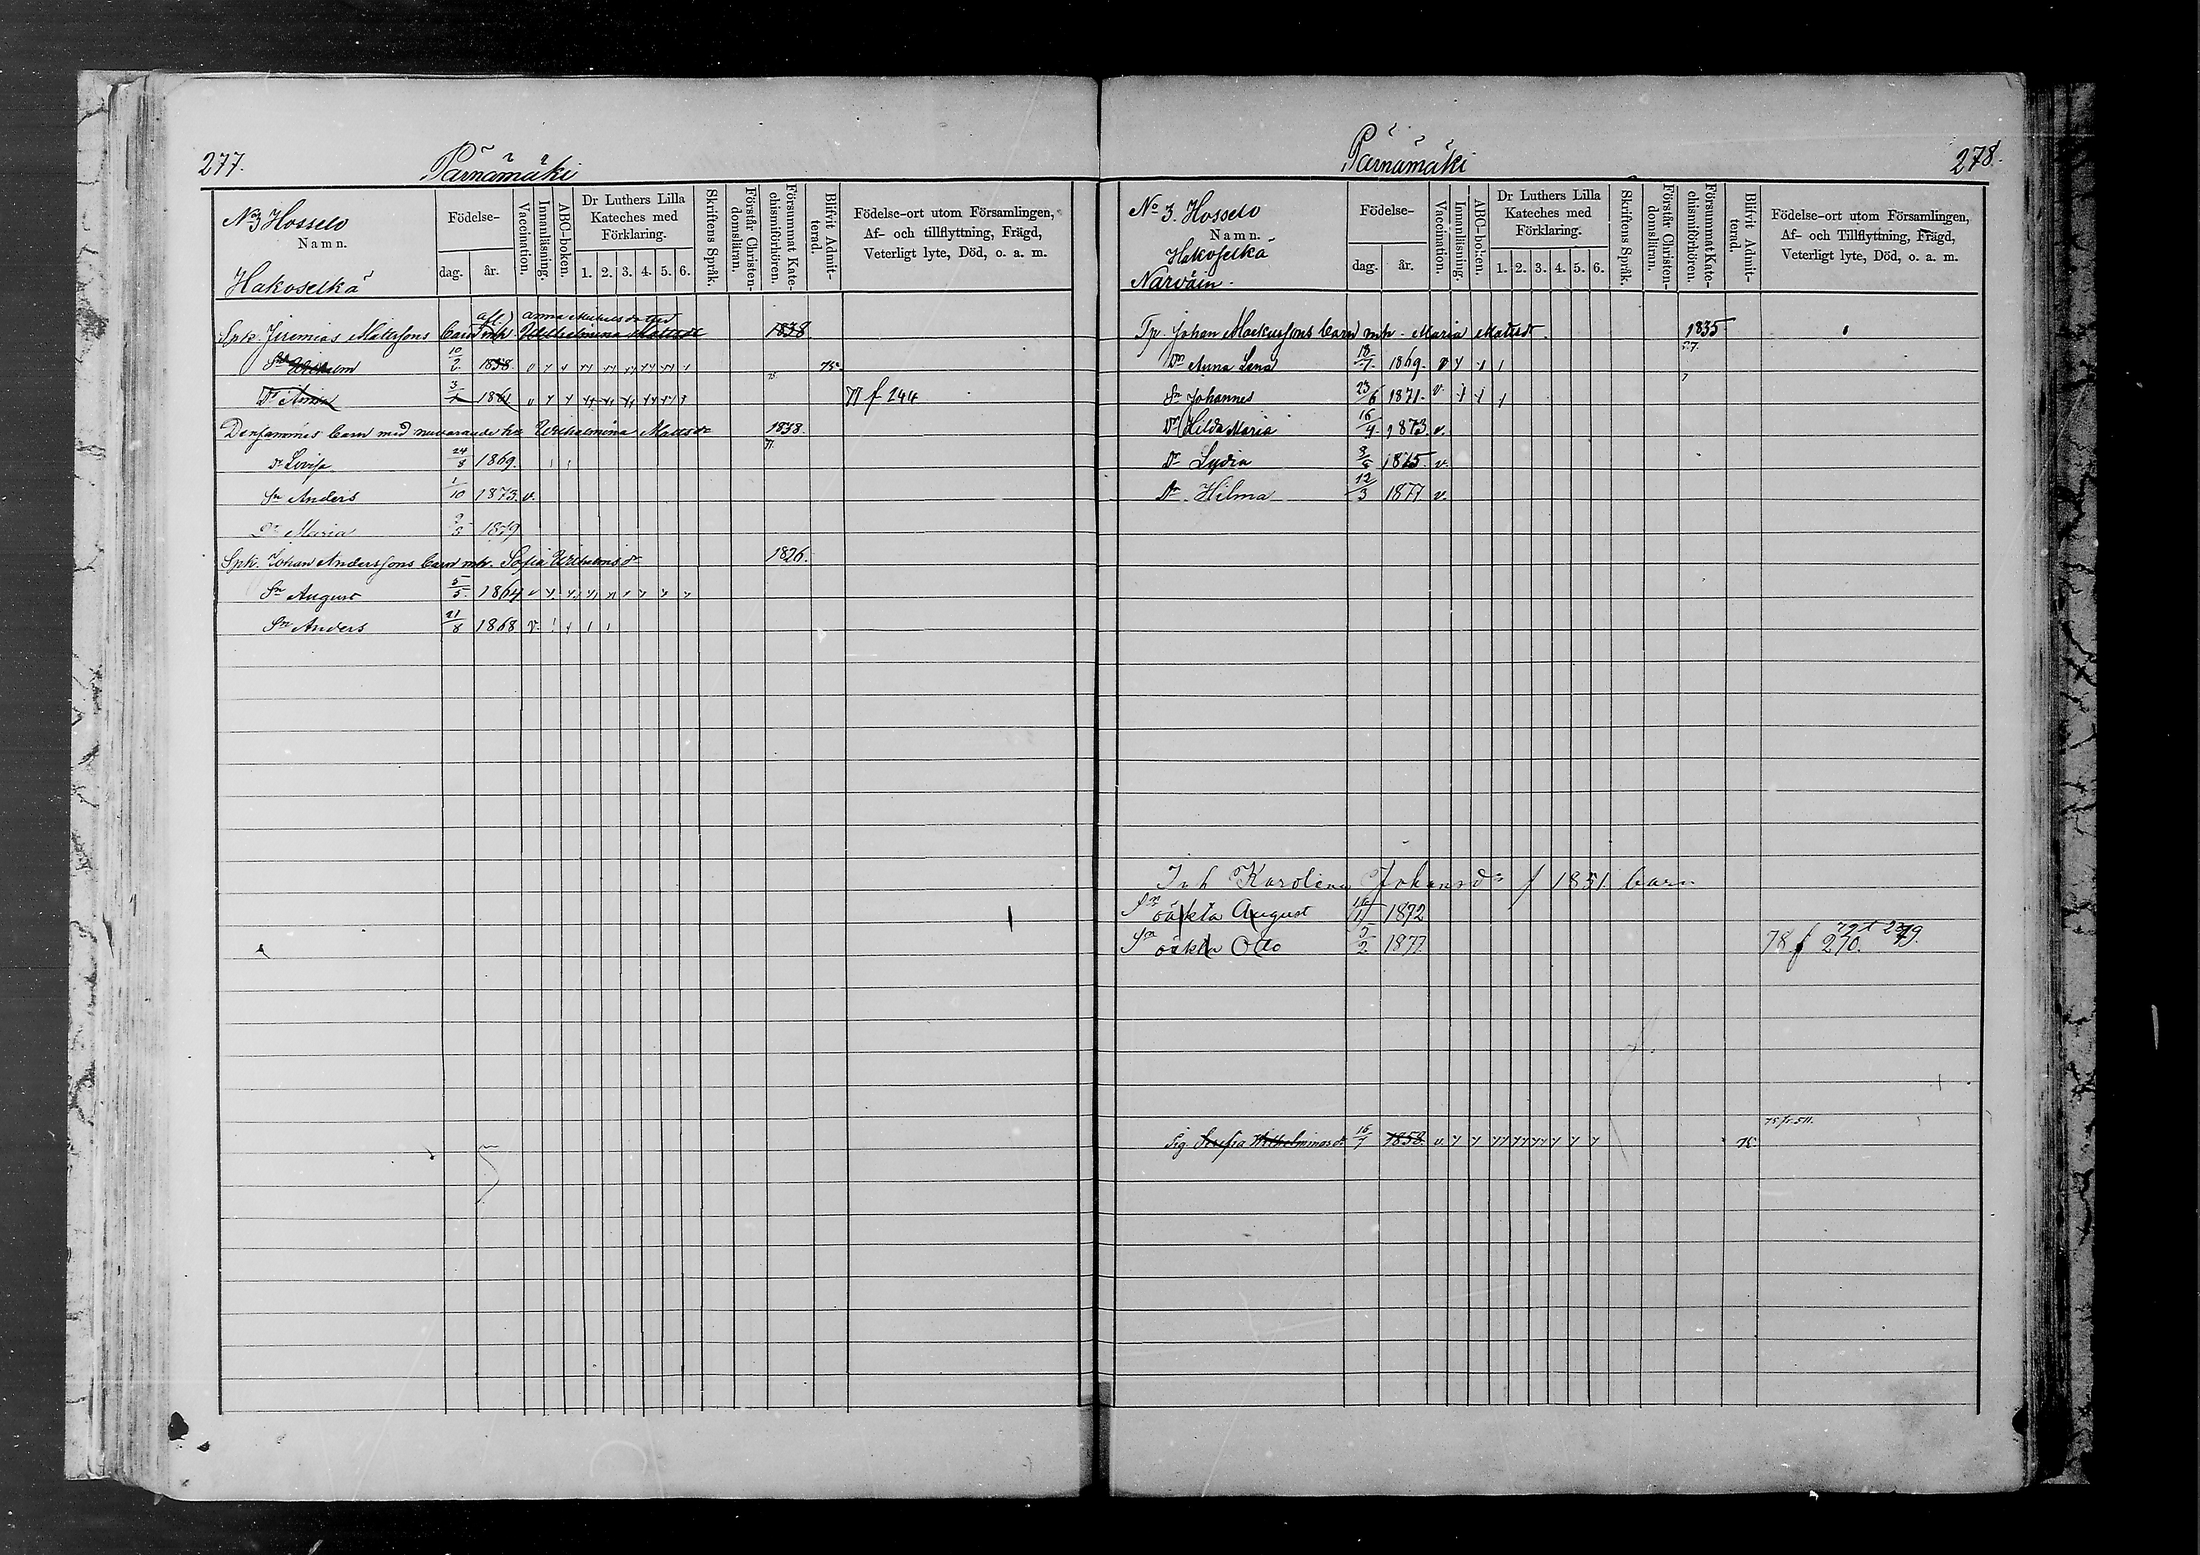 277.
Pärnämäki
No 3 Hosselo
Namn.
Hakoselkä
Födelse-
dag.
år.
Vaccination.
Innanläsning.
ABC-boken.
Dr Luthers Lilla
Kateches med
Förklaring.
1. 2. 3. 4. 5. 6.
Skriftens Språk.
Förstår Christen-
domsläran.
Försummat Kate-
chismiförhören.
Blifvit Admit-
terad.
Födelse-ort utom Församlingen,
Af- och tillflyttning, Frägd,
Veterligt lyte, Död, o. a. m.
afl Anna Michelsdr
Spk. Jeremias Mattssons barn m. h. Wilhelmina Mattsdr 1838
Sn Wilhelm 10/2 1858. v 75.
Dr 3/1 1861 v 77 f 244
Densammes barn med nuvarande hu Wilhelmina Mattsdr 1838.
77.
Dr Lovisa 24/8 1869.
Sn Anders 1/10 1873. v.
Dr Maria 9/5 1879
Spk. Johan Anderssons barn mh. Sofia Wilhelmsdr 1826.
Sn August 5/5 1864 v
Sn Anders 21/8 1868 v.
278.
Pärnämäki
No 3. Hosselo
Namn.
Hakoselkä
Närväin.
Födelse-
dag.
år.
Vaccination.
Innanläsning.
ABC-boken.
Dr Luthers Lilla
Kateches med
Förklaring.
1. 2. 3. 4. 5. 6.
Skriftens Språk.
Förstår Christen-
domsläran.
Försummat Kate-
chismiförhören.
Blifvit Admit-
terad.
Födelse-ort utom Församlingen,
Af- och Tillflyttning, Frägd,
Veterligt lyte, Död, o. a. m.
Tp. Johan Markussons barn mh. Maria Mattsdr. 1835
77.
Dr Anna Lena 18/7 1869. v
Sn Johannes 23/6 1871. v.
Dr Hilda Maria 16/9 1873. v.
Dr Lydia 1875. v.
Dr Hilma 12/3 1877 v.
Inh Karolina Johansdr f 1851 barn
Sn oäkta August 1872
Sn oäkta Otto 5/2 1877. 78 f 270. 79.
75 fr. 511.
Pig Sofia Wilhelminasdr 16/1 1858. v. 75.